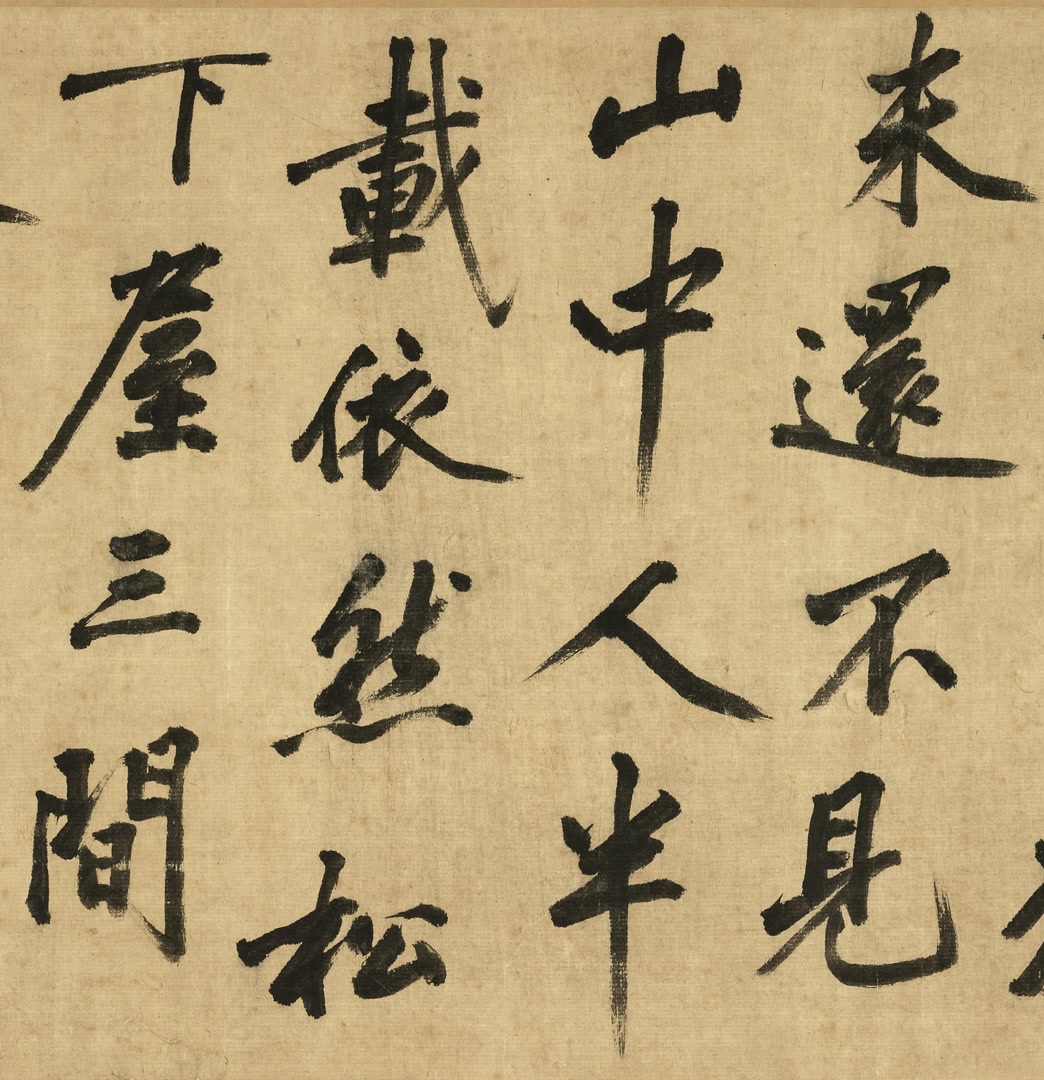 未還不見
山中人半
載依然松
下屋三間